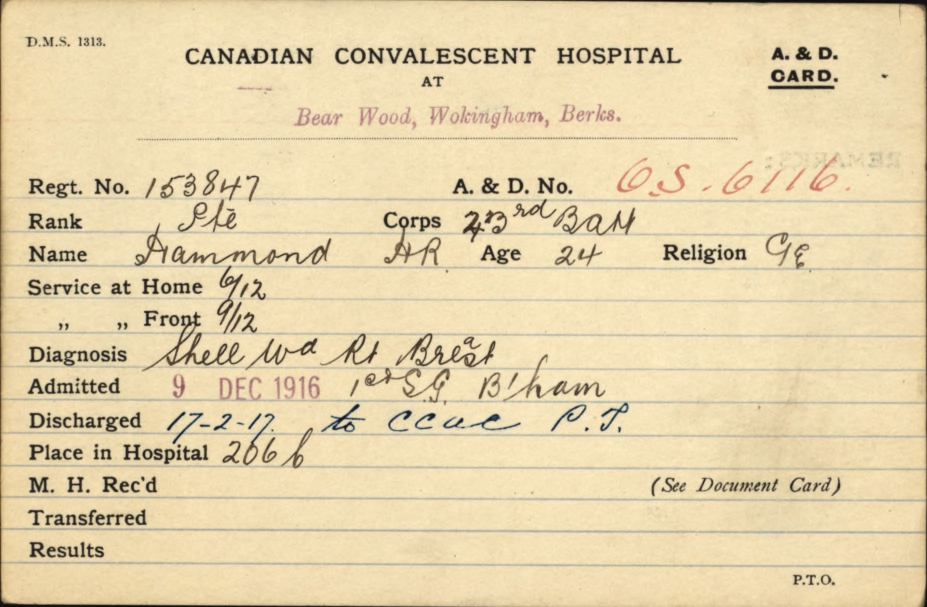 D.M.S. 1313.
CANADIAN CONVALESCENT HOSPITAL
A. & D.
CARD.
AT
Bear Wood, Wokingham, Berks.
REMARKS:
Regt. No. 153847 A. & D. No. OS. 6116.
Rank Pte Corps 43rd Batt
Name Hammond HR Age 24 Religion CE
Service at Home 6/12
„ „ Front 9/12
Diagnosis Shell Wd Rt Breast
Admitted 9 DEC 1916 1st S.G. B'ham
Discharged 17-2-17. to CCAC P.T.
Place in Hospital 206 b
M. H. Rec'd (See Document Card)
Transferred
Results
P.T.O.